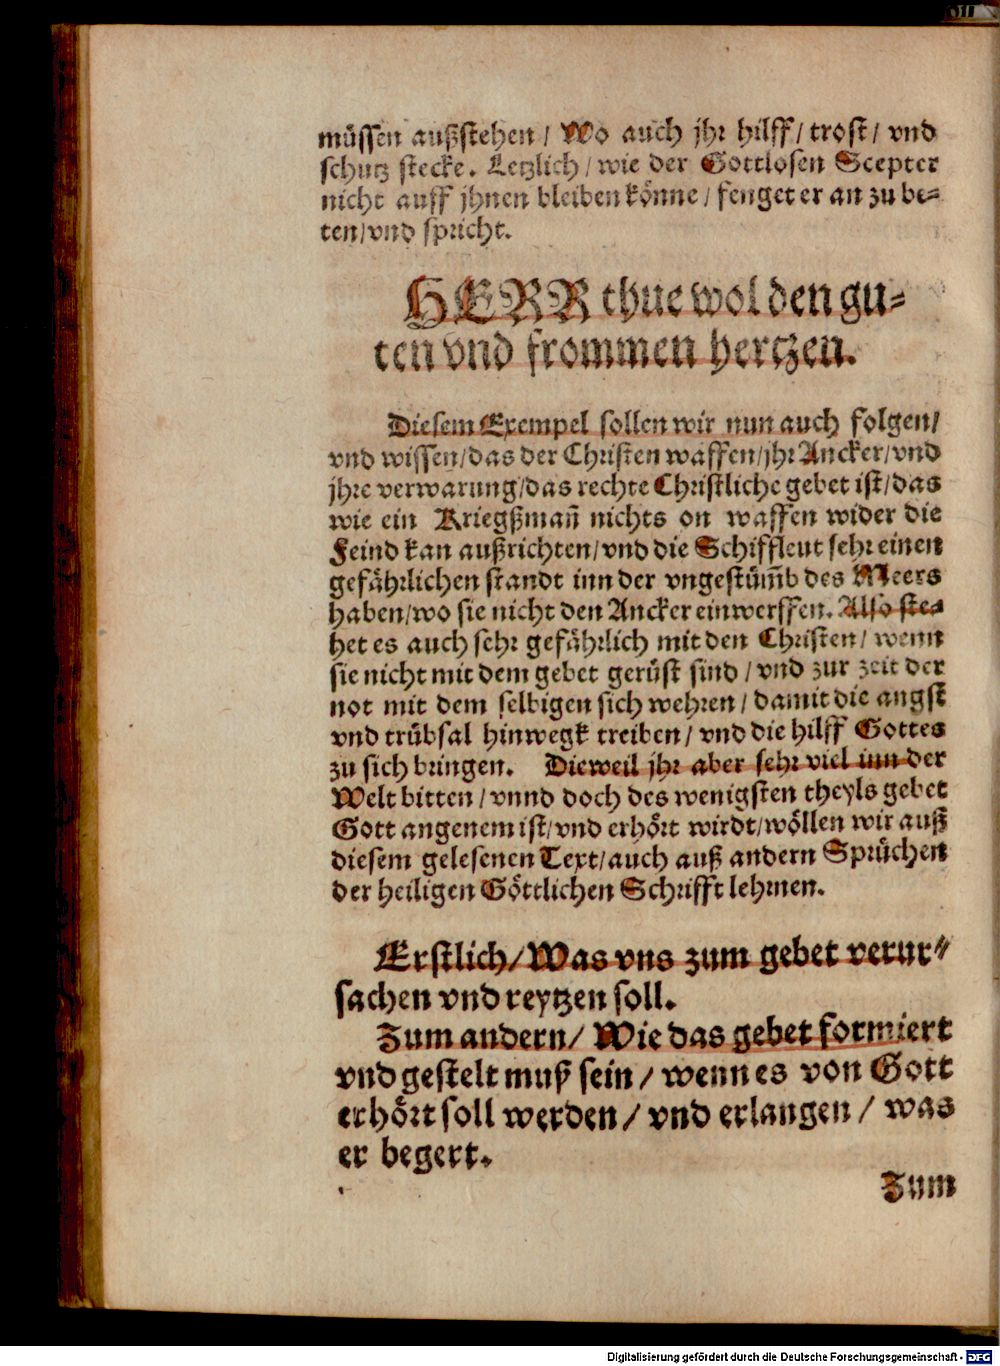 müssen außstehen / Wo auch jhr hilff / trost / vnd
schutz stecke. Letzlich / wie der Gottlosen Scepter
nicht auff jhnen bleiben könne / fenget er an zu be-
ten / vnd spricht.
HERR thue wol den gu-
ten vnd frommen hertzen.
Diesem Exempel sollen wir nun auch folgen /
vnd wissen / das der Christen waffen / jhr Ancker / vnd
jhre verwarung / das rechte Christliche gebet ist / das
wie ein Kriegßmañ nichts on waffen wider die
Feind kan außrichten / vnd die Schiffleut sehr einen
gefährlichen standt inn der vngestüm̃b des Meers
haben / wo sie nicht den Ancker einwerffen. Also ste-
het es auch sehr gefährlich mit den Christen / wenn
sie nicht mit dem gebet gerüst sind / vnd zur zeit der
not mit dem selbigen sich wehren / damit die angst
vnd trübsal hinwegk treiben / vnd die hilff Gottes
zu sich bringen. Dieweil jhr aber sehr viel inn der
Welt bitten / vnnd doch des wenigsten theyls gebet
Gott angenem ist / vnd erhört wirdt / wöllen wir auß
diesem gelesenen Text / auch auß andern Sprüchen
der heiligen Göttlichen Schrifft lehrnen.
Erstlich / Was vns zum gebet verur-
sachen vnd reytzen soll.
Zum andern / Wie das gebet formiert
vnd gestelt muß sein / wenn es von Gott
erhört soll werden / vnd erlangen / was
er begert.
Zum
Digitalisierung gefördert durch die Deutsche Forschungsgemeinschaft - DFG